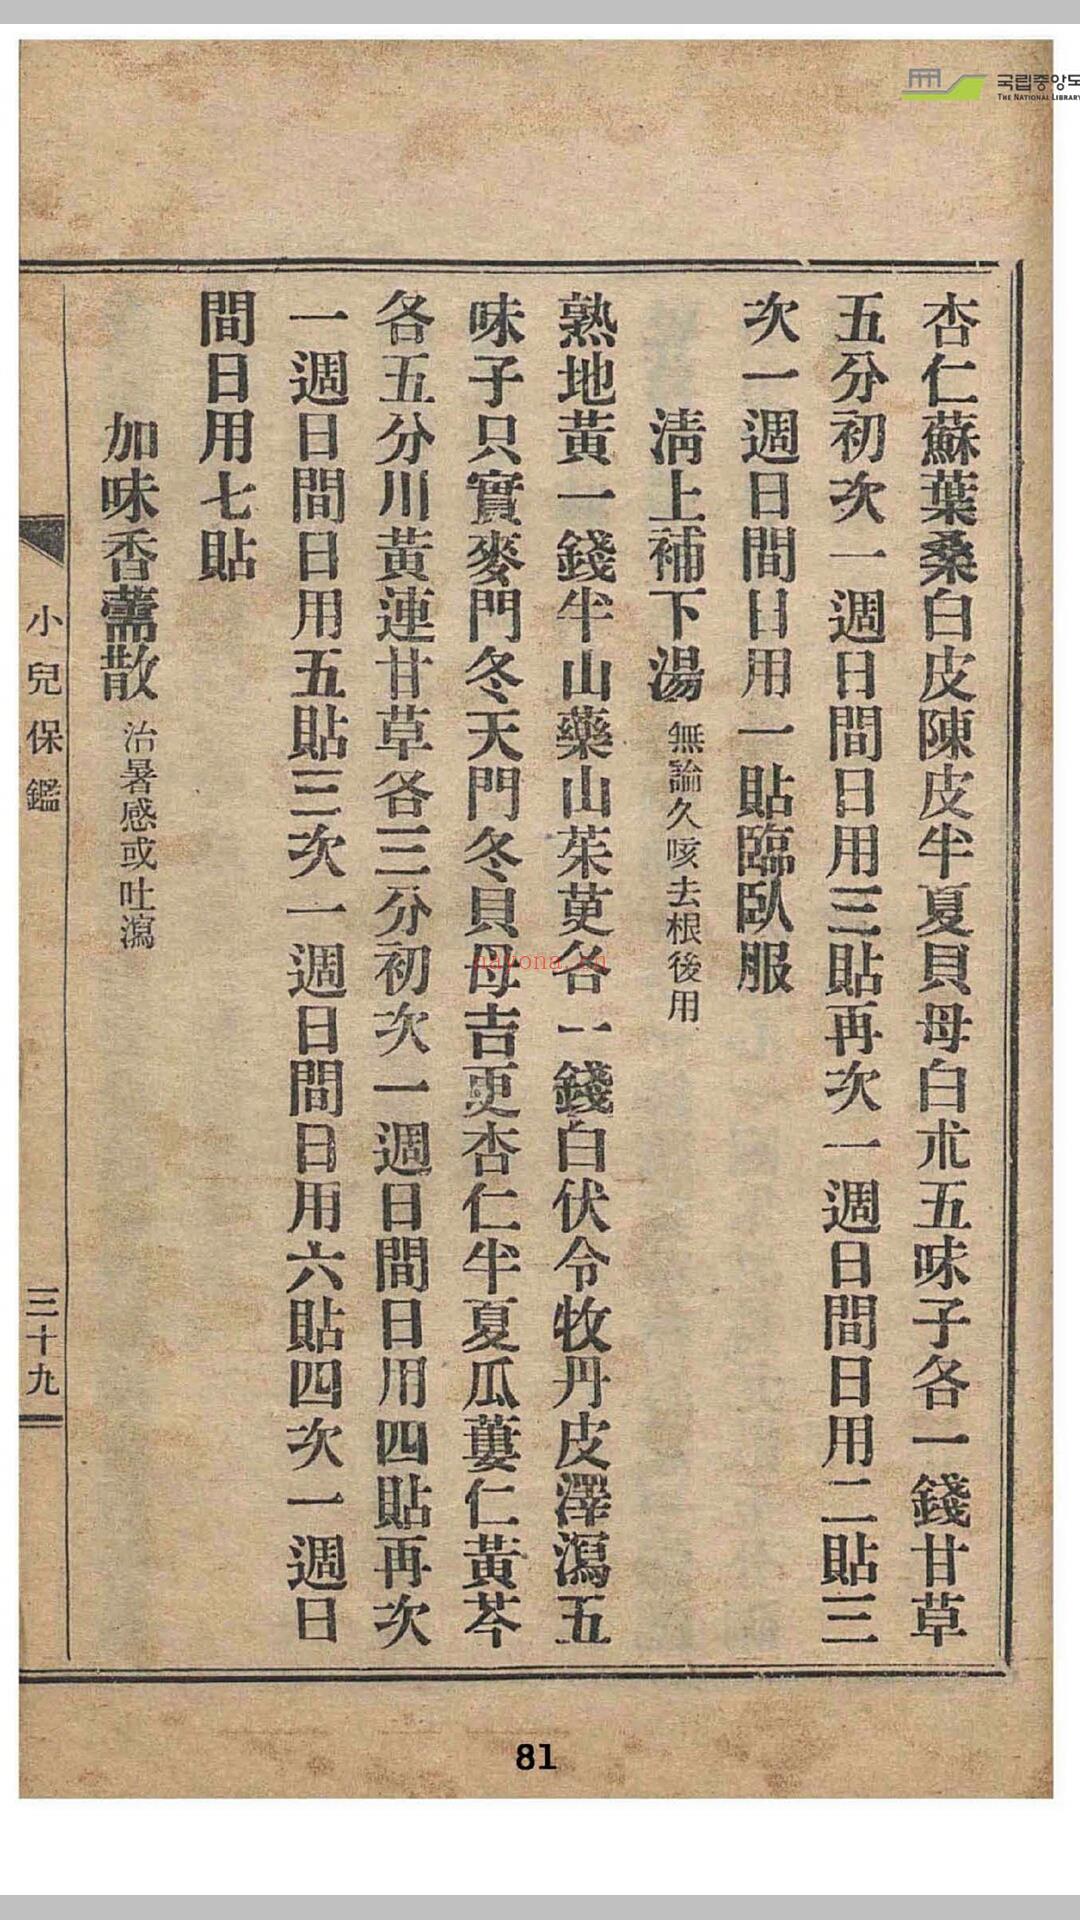 국립중앙도
THE NATIONAL LIBRARY
杏仁蘇葉桑白皮陳皮半夏貝母白朮五味子各一錢甘草
五分初次一週日間日用三貼再次一週日間日用二貼三
次一週日間日用一貼臨臥服
淸上補下湯 無論久咳去根後用
熟地黃一錢半山藥山茱萸各一錢白伏令牧丹皮澤瀉五
味子只實麥門冬天門冬貝母吉更杏仁半夏瓜蔞仁黃芩
各五分川黃連甘草各三分初次一週日間日用四貼再次
一週日間日用五貼三次一週日間日用六貼四次一週日
間日用七貼
加味香薷散 治暑感或吐瀉
小兒保鑑
三十九
nayona.cn
81